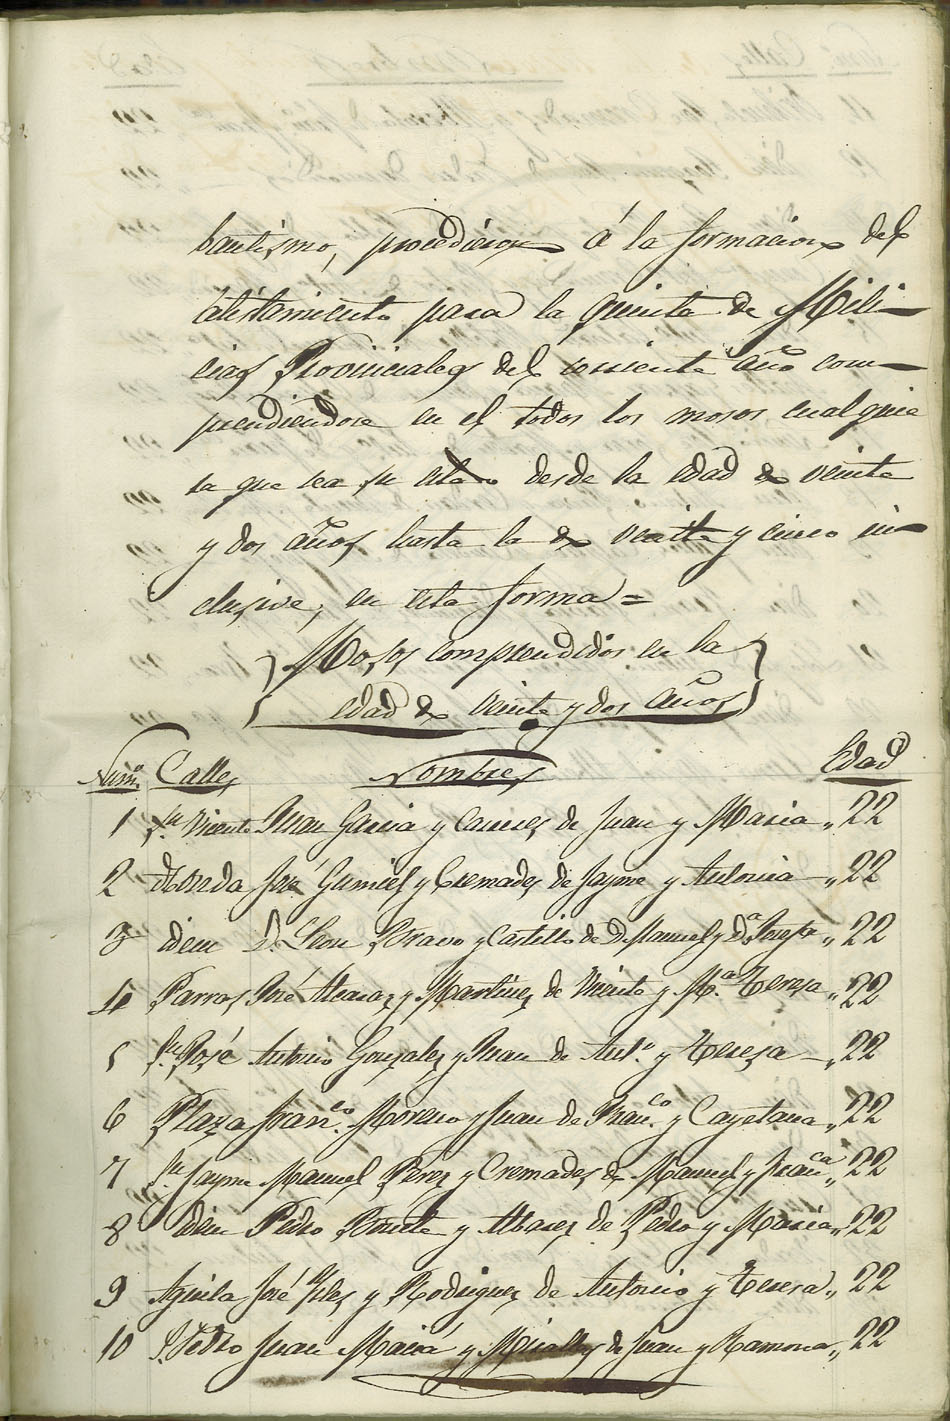 bautismo, procedieron á la formacion del
alistamiento para la quinta de Mili-
cias Provinciales del corriente año com-
prendiendose en el todos los mosos cualquie
ra que sea su estado desde la edad de veinte
y dos años hasta la de veinte y cinco in-
clusive, en esta forma =
Mosos comprendidos en la
edad de veinte y dos años
Num.º Calles Nombres Edad
1 Sn. Vicente Juan Garcia y de Juan y Maria „ 22
2 Honda José Gumiel y Cremades de Jayme y Antonia - „ 22
3 idem D. Leon Bravo y Castillo de D. Manuel y D.ª Josefa „ 22
4 Parras José Alcaraz y Martinez de Vicente y M.ª Teresa „ 22
5 Sn. José Antonio Gonzalez y Juan de Ant.º y Teresa - „ 22
6 Plaza Fran.co Moreno y Juan de Fran.co y Cayetana „ 22
7 Sn. Jayme Manuel Perez y Cremades de Manuel y Fran.ca „ 22
8 idem Pedro y de Pedro y Maria „ 22
9 Aguila José y Rodriguez de Antonio y Teresa „ 22
10 S. Pedro Juan Maciá y Miralles de Juan y Ramona „ 22